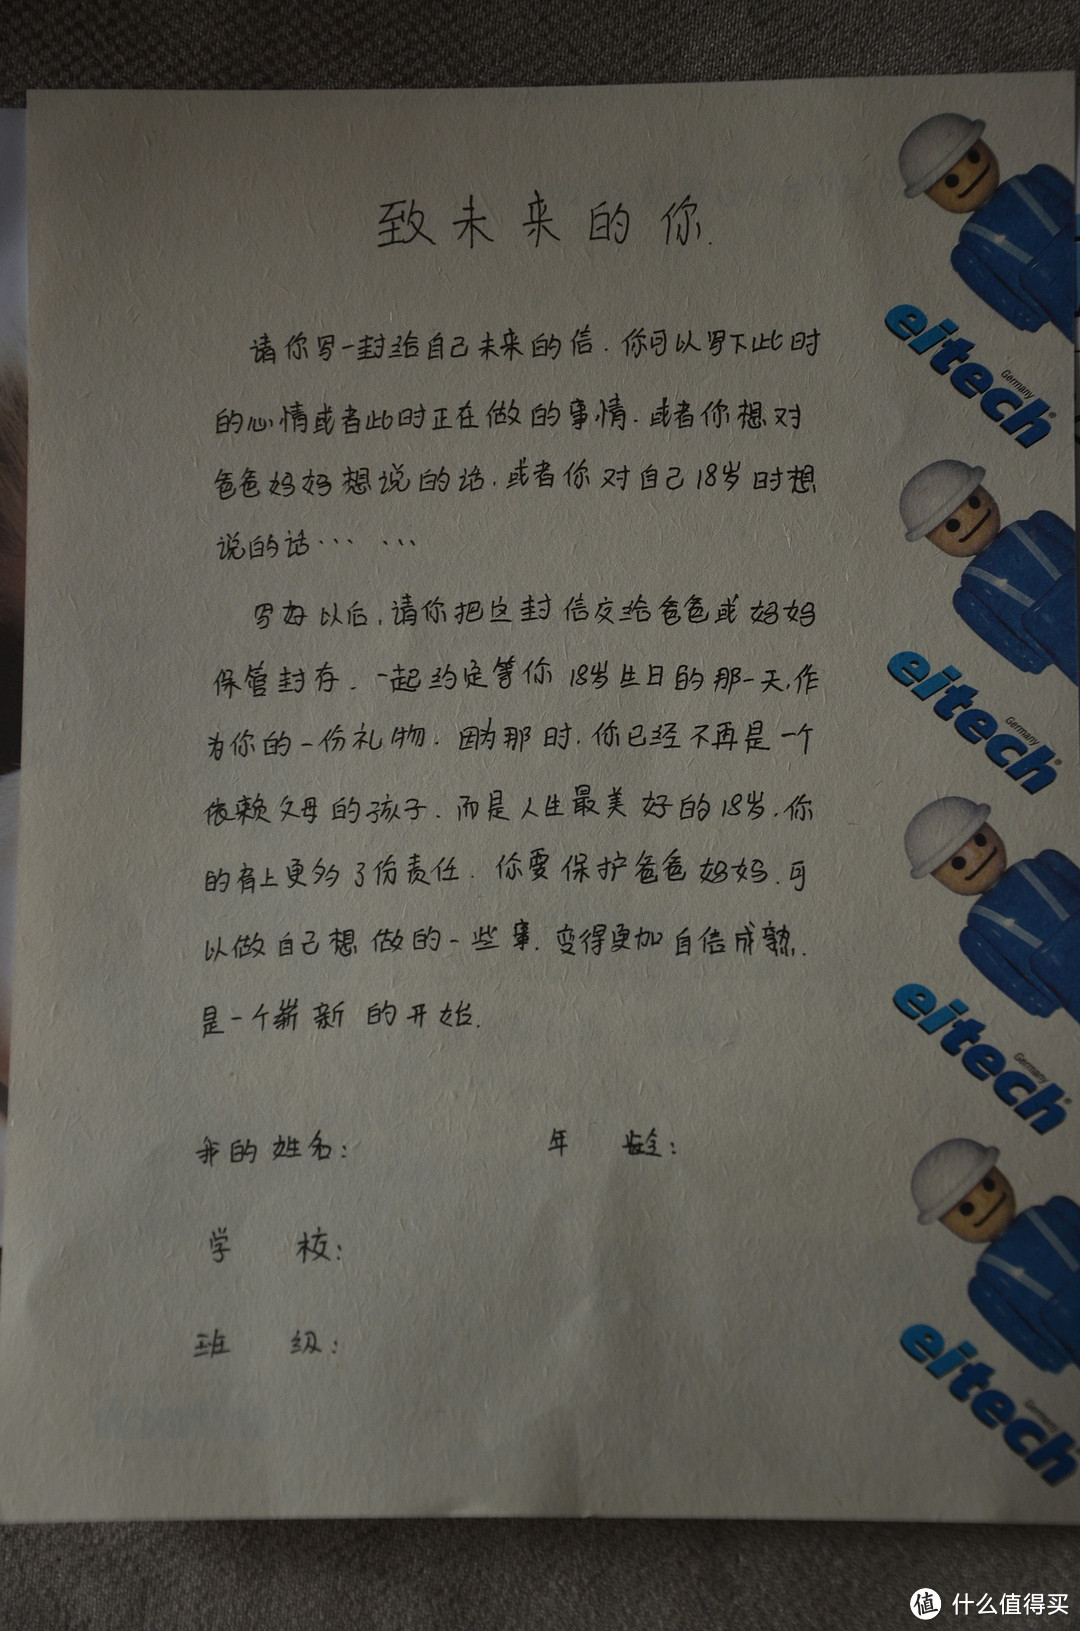 致未来的你.
请你写一封给自己未来的信.你可以写下此时
的心情或者此时正在做的事情.或者你想对
爸爸妈妈想说的话.或者你对自己18岁时想
说的话… …
写好以后,请你把这封信交给爸爸或妈妈
保管封存.一起约定等你18岁生日的那一天,作
为你的一份礼物.因为那时.你已经不再是一个
依赖父母的孩子.而是人生最美好的18岁.你
的肩上更多了份责任.你要保护爸爸妈妈.可
以做自己想做的一些事.变得更加自信成熟.
是一个崭新的开始.
我的姓名: 年 龄:
学 校:
班 级:
eitech
Germany
eitech
Germany
eitech
Germany
eitech
Germany
值 什么值得买